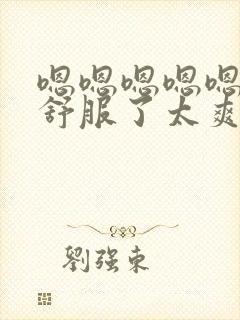 嗯嗯嗯嗯嗯
舒服了太爽
劉强东